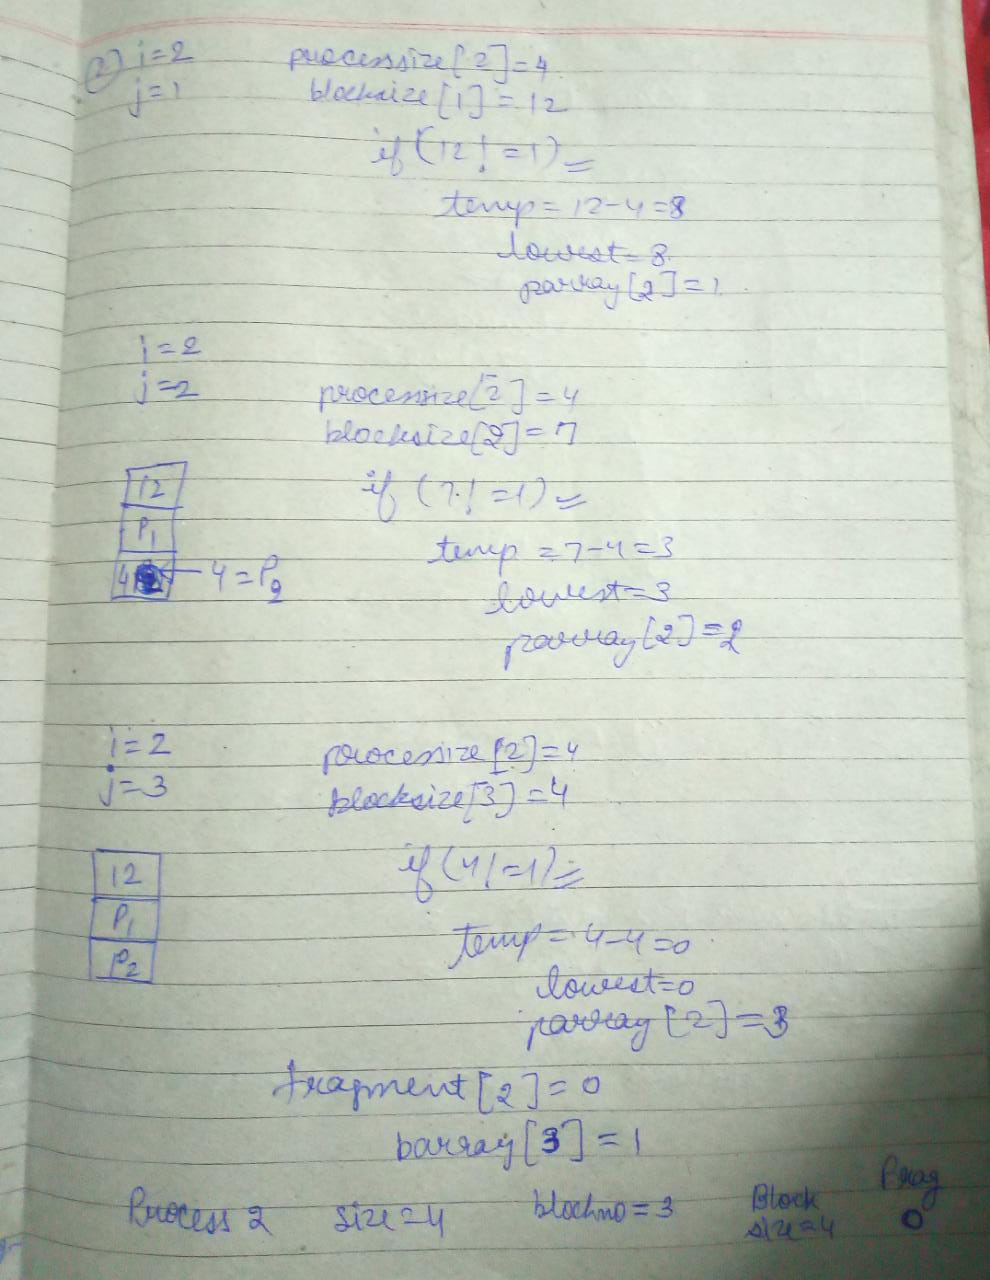 (2) i=2 processize[2]=4
j=1 blocksize[1]=12
if(12!=1)
temp=12-4=8
lowest=8
parray[2]=1
i=2
j=2 processize[2]=4
blocksize[2]=7
12 if (7!=1)
P1 temp=7-4=3
4 4=P2
lowest=3
parray[2]=2
i=2 processize[2]=4
j=3 blocksize[3]=4
12 if(4!=1)
P1
P2 temp=4-4=0
lowest=0
parray[2]=3
fragment[2]=0
barray[3]=1
Process 2 size=4 blockno=3 Block size=4 Frag 0